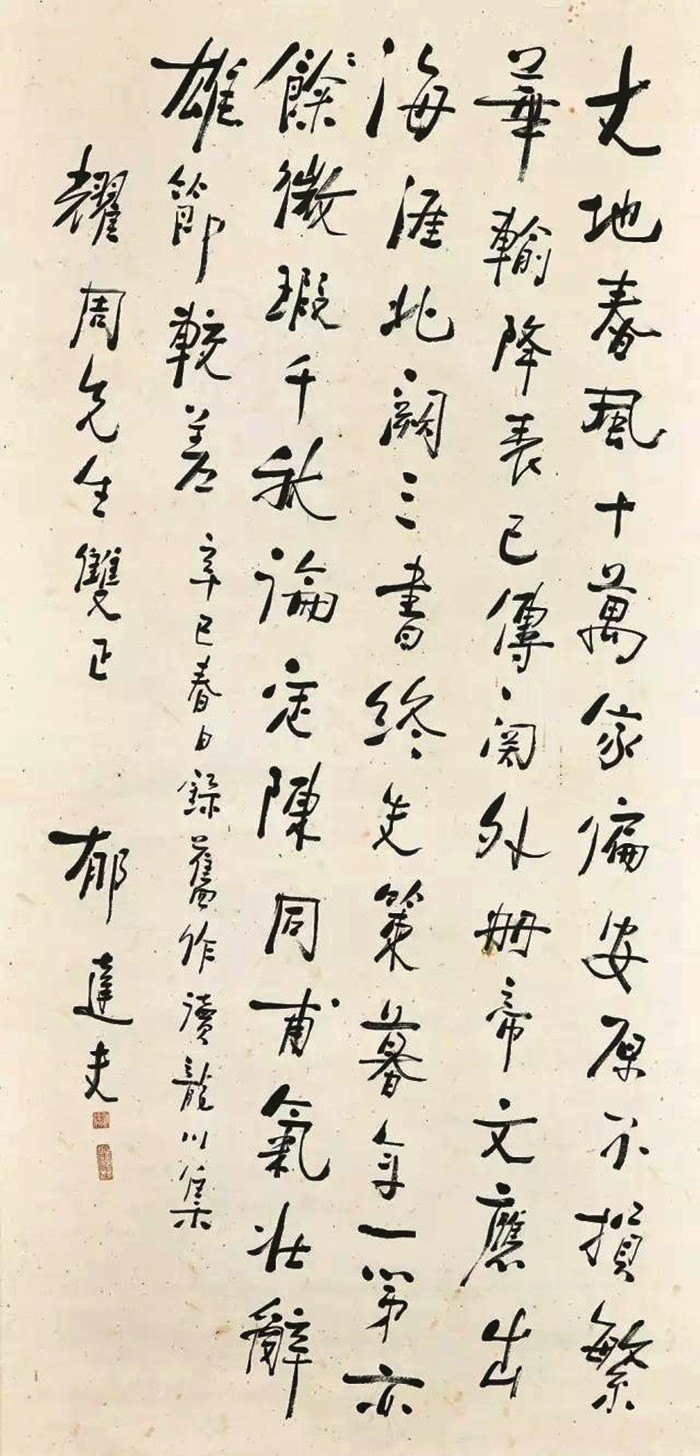 大地春風十萬家偏安原不損繁
華輸降表已傳関外冊帝文應出
海涯北闕三書終失策暮年一第亦
餘微瑕千秋論定陳同甫氣壯辭
雄節較差 辛巳春日錄舊作讀龍川集
耀周先生雙正 郁達夫